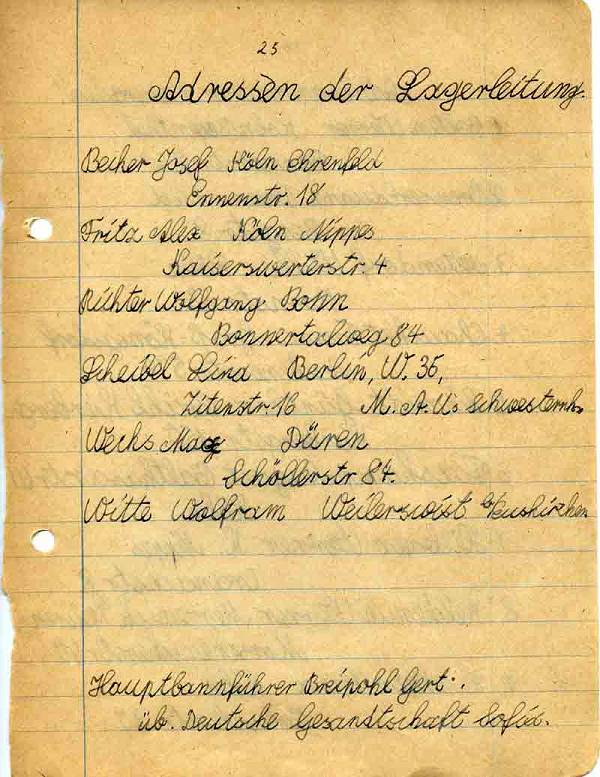 25
Adressen der Lagerleitung.
Becher Josef Köln Ehrenfeld
Ennenstr. 18
Fritz Alex Köln Nippes
Kaiserswerterstr. 4
Richter Wolfgang Bonn
Bonnertalweg 84
Scheibel Lina Berlin, W. 35,
Zitenstr 16 M.A.U's Schwesternh.
Wechs Max Düren
Schöllerstr 84.
Witte Wolfram Weilerswist
Hauptbannführer Breipohl Gert.
üb. Deutsche Gesandtschaft Sofia.